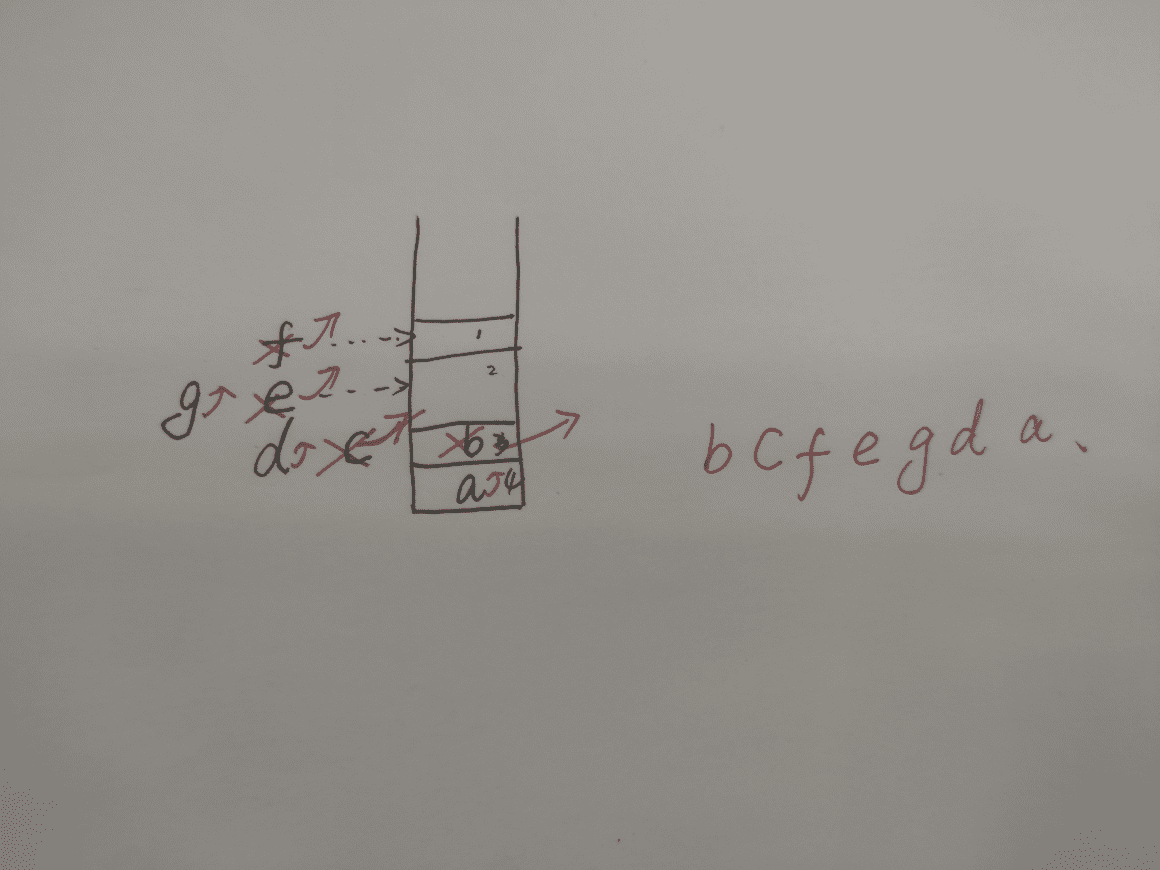 f 1
g e 2
d c b 3
a 4
b C f e g d a、